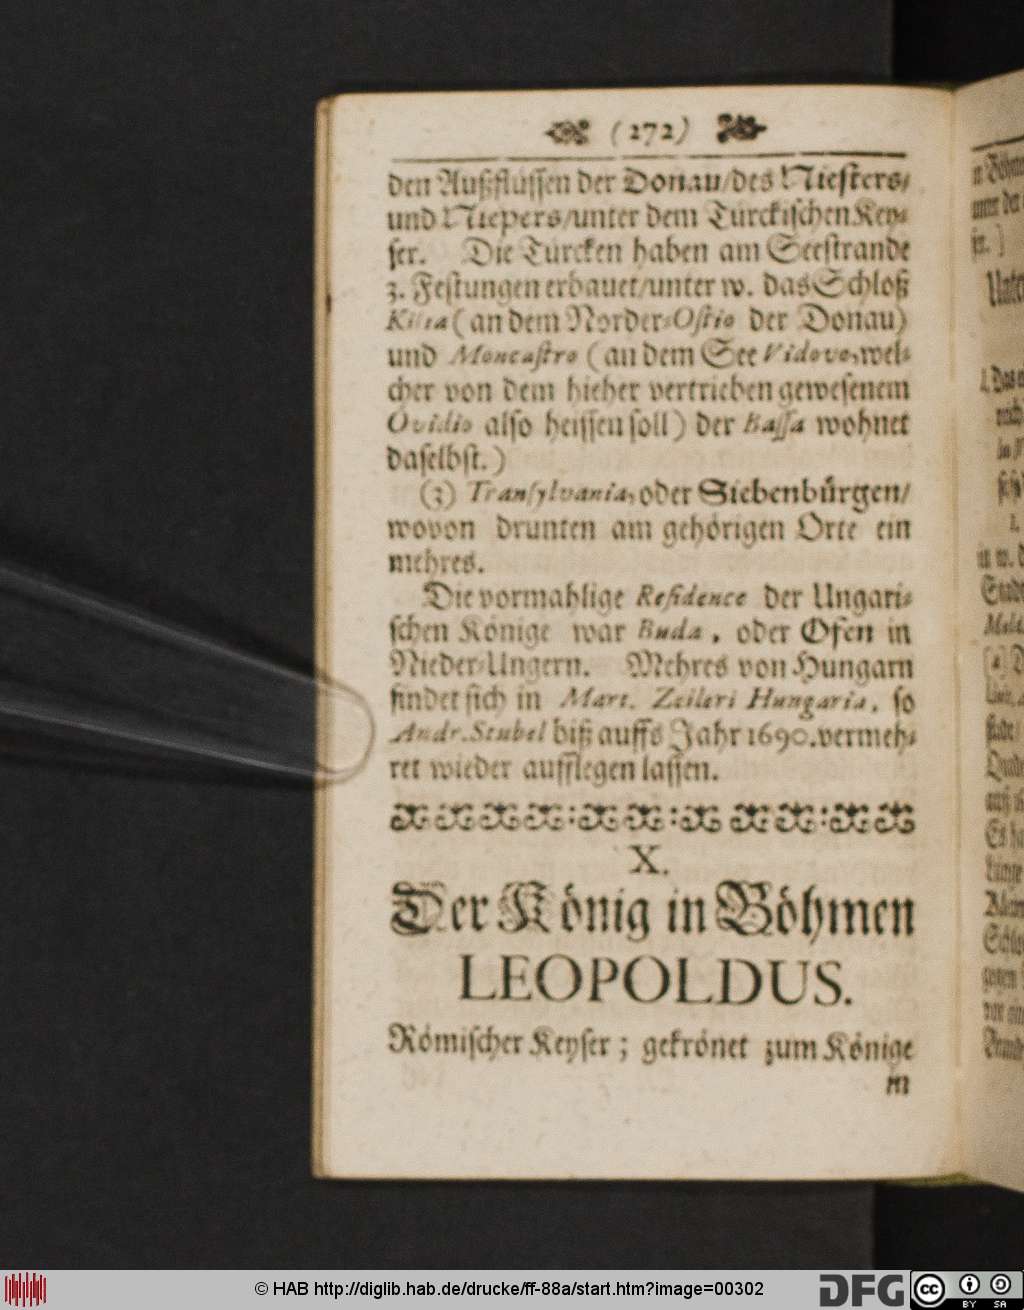 (272)
den Außflüssen der Donau/des Niesters/
und Niepers/unter dem Türckischen Key-
ser. Die Türcken haben am Seestrande
3. Festungen erbauet/unter w. das Schloß
Kilia (an dem Norder-Ostio der Donau)
und Moncastro (an dem See Vidovo, wel-
cher von dem hieher vertrieben gewesenem
Ovidio also heissen soll) der Bassa wohnet
daselbst.)
(3) Transylvania, oder Siebenbürgen/
wovon drunten am gehörigen Orte ein
mehres.
Die vormahlige Residence der Ungari-
schen Könige war Buda, oder Ofen in
Nieder-Ungern. Mehres von Hungarn
findet sich in Mart. Zeileri Hungaria, so
Andr. Stubel biß auffs Jahr 1690. vermeh-
ret wieder aufflegen lassen.
X.
Der König in Böhmen
LEOPOLDUS.
Römischer Keyser; gekrönet zum Könige
in
© HAB http://diglib.hab.de/drucke/ff-88a/start.htm?image=00302
DFG
cc
BY SA